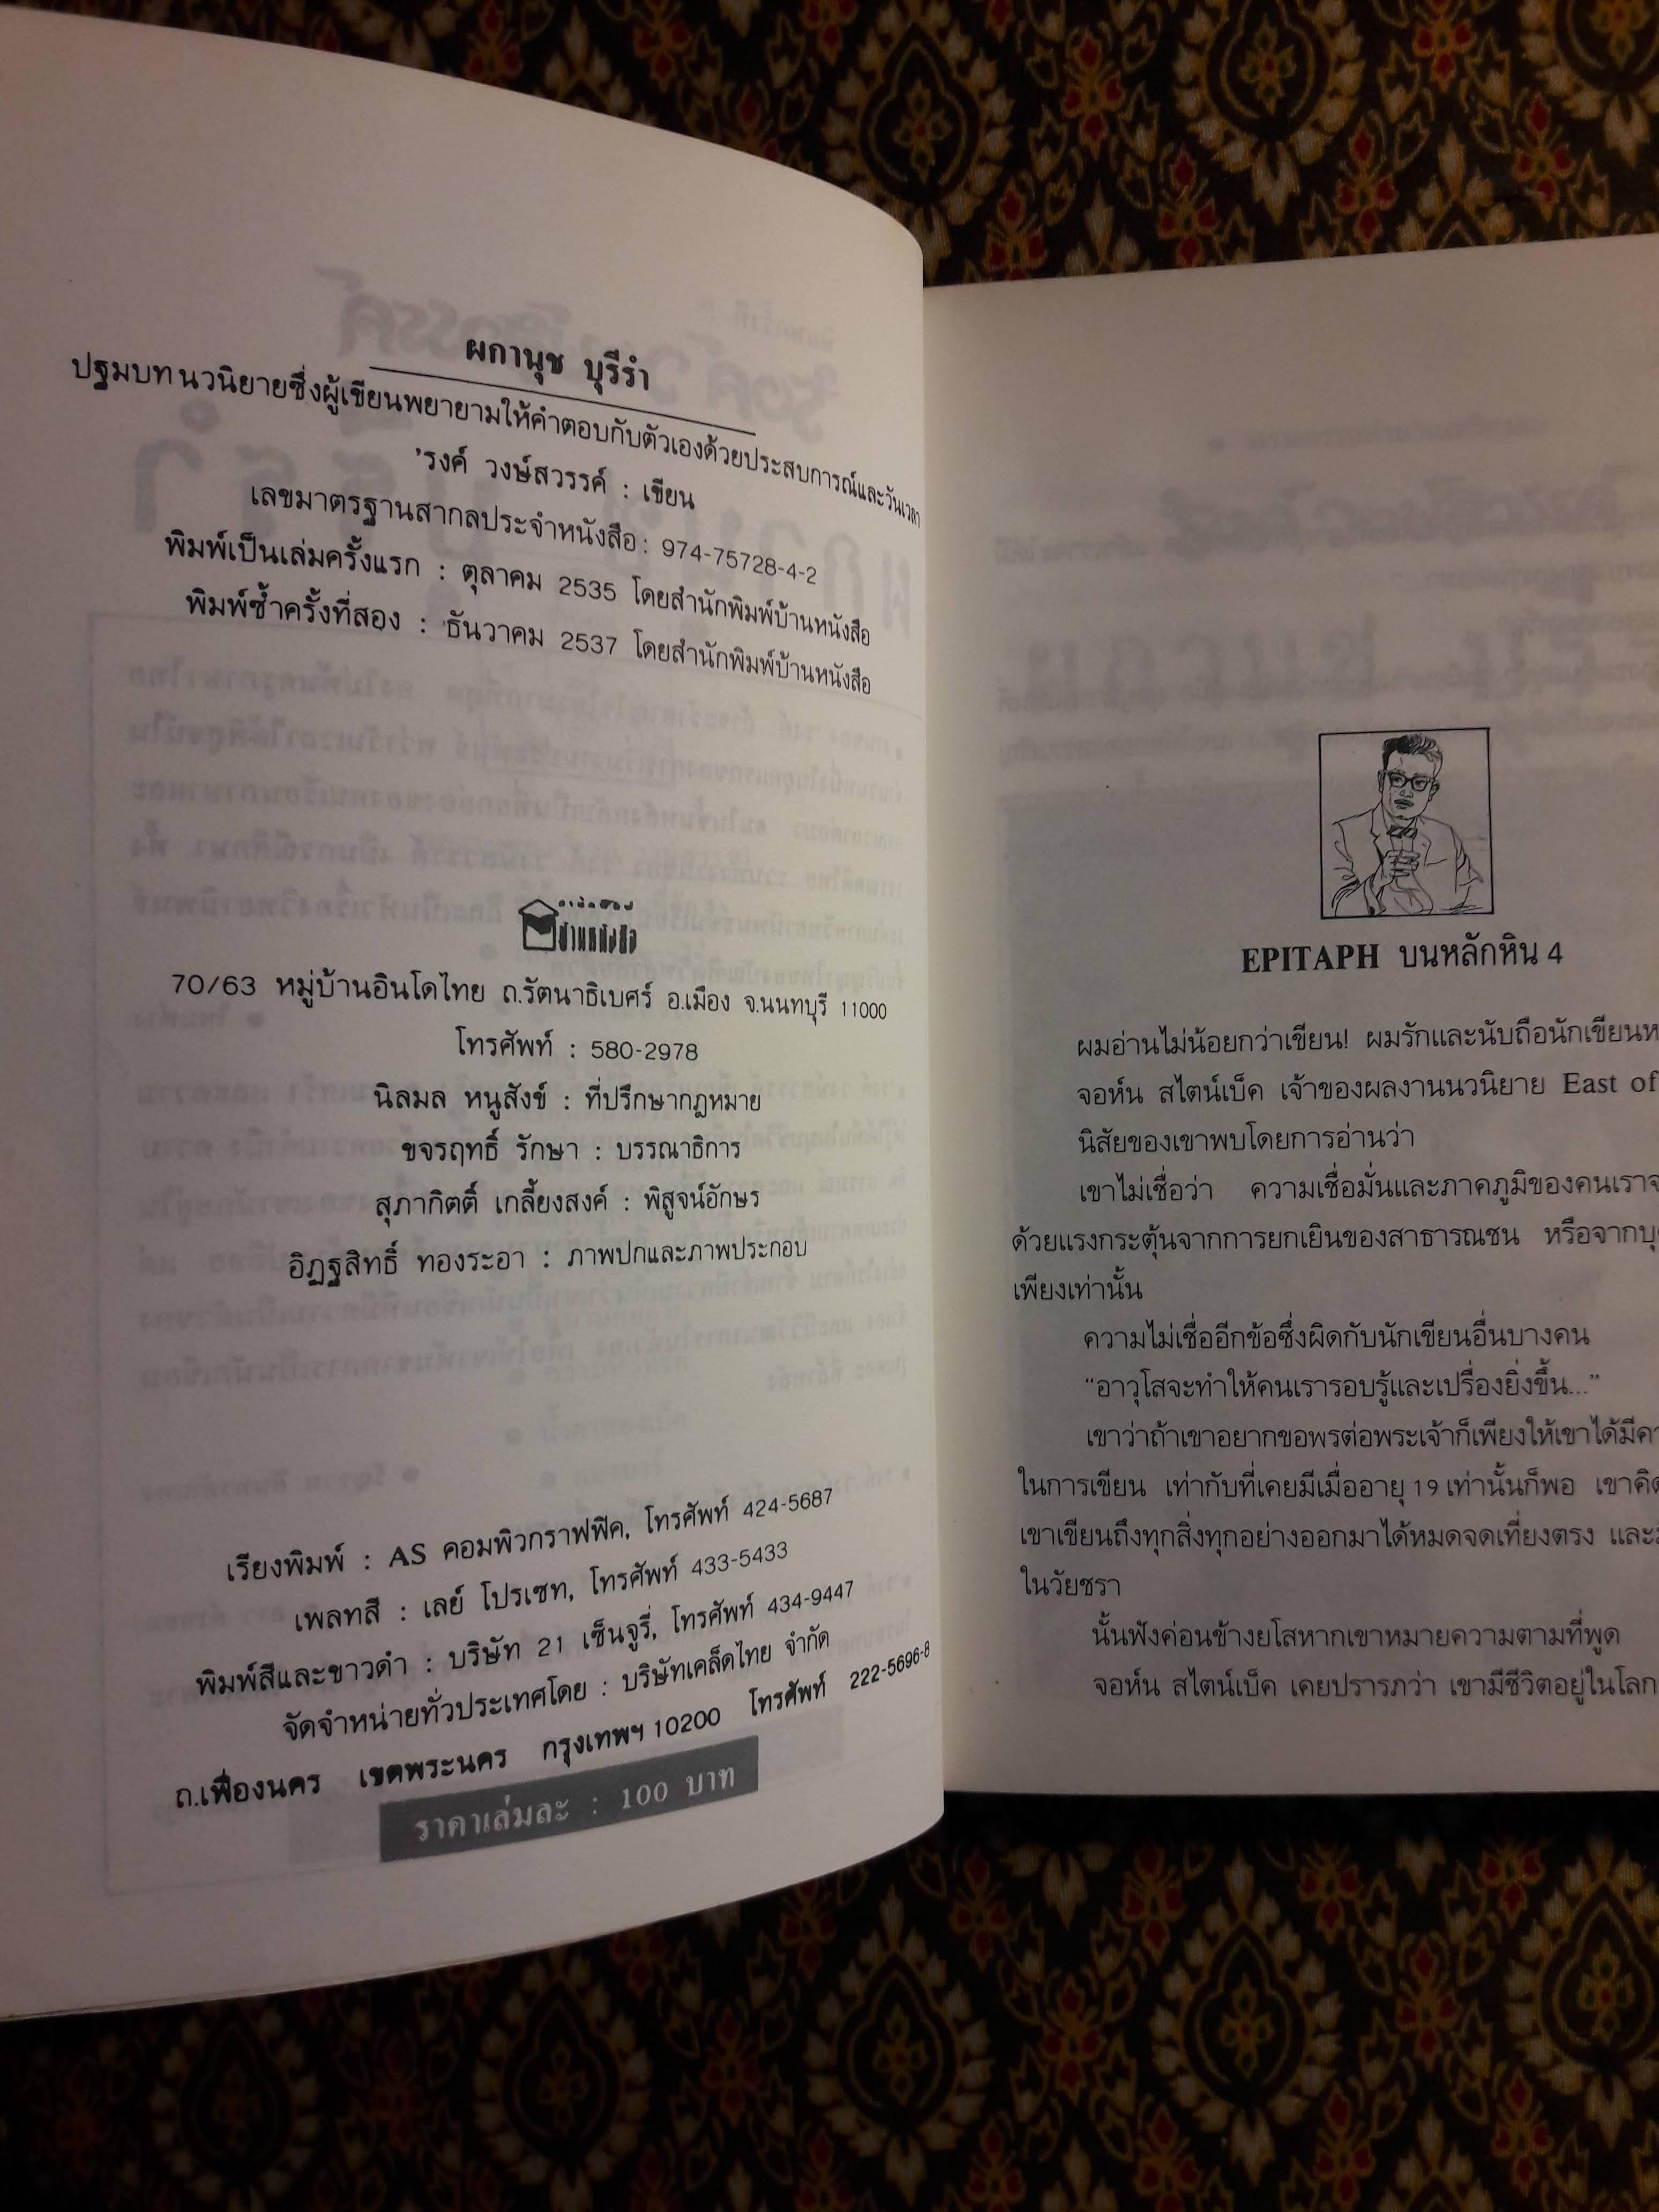 ผกานุช บุรีรำ
ปฐมบทนวนิยายซึ่งผู้เขียนพยายามให้คำตอบกับตัวเองด้วยประสบการณ์และวันเวลา
'รงค์ วงษ์สวรรค์ : เขียน
เลขมาตรฐานสากลประจำหนังสือ : 974-75728-4-2
พิมพ์เป็นเล่มครั้งแรก : ตุลาคม 2535 โดยสำนักพิมพ์บ้านหนังสือ
พิมพ์ซ้ำครั้งที่สอง : ธันวาคม 2537 โดยสำนักพิมพ์บ้านหนังสือ
สำนักพิมพ์
บ้านหนังสือ
70/63 หมู่บ้านอินโดไทย ถ.รัตนาธิเบศร์ อ.เมือง จ.นนทบุรี 11000
โทรศัพท์ : 580-2978
นิลมล หนูสังข์ : ที่ปรึกษากฎหมาย
ขจรฤทธิ์ รักษา : บรรณาธิการ
สุภากิตติ์ เกลี้ยงสงค์ : พิสูจน์อักษร
อิฏฐสิทธิ์ ทองระอา : ภาพปกและภาพประกอบ
เรียงพิมพ์ : AS คอมพิวกราฟฟิค, โทรศัพท์ 424-5687
เพลทสี : เลย์ โปรเซท, โทรศัพท์ 433-5433
พิมพ์สีและขาวดำ : บริษัท 21 เซ็นจูรี่, โทรศัพท์ 434-9447
จัดจำหน่ายทั่วประเทศโดย : บริษัทเคล็ดไทย จำกัด
ถ.เฟื่องนคร เขตพระนคร กรุงเทพฯ 10200 โทรศัพท์ 222-5696-8
ราคาเล่มละ : 100 บาท
EPITAPH บนหลักหิน 4
ผมอ่านไม่น้อยกว่าเขียน! ผมรักและนับถือนักเขียนห
จอห์น สไตน์เบ็ค เจ้าของผลงานนวนิยาย East of
นิสัยของเขาพบโดยการอ่านว่า
เขาไม่เชื่อว่า ความเชื่อมั่นและภาคภูมิของคนเราจ
ด้วยแรงกระตุ้นจากการยกเยินของสาธารณชน หรือจากบุ
เพียงเท่านั้น
ความไม่เชื่ออีกข้อซึ่งผิดกับนักเขียนอื่นบางคน
“อาวุโสจะทำให้คนเรารอบรู้และเปรื่องยิ่งขึ้น...”
เขาว่าถ้าเขาอยากขอพรต่อพระเจ้าก็เพียงให้เขาได้มีคว
ในการเขียน เท่ากับที่เคยมีเมื่ออายุ 19 เท่านั้นก็พอ เขาคิด
เขาเขียนถึงทุกสิ่งทุกอย่างออกมาได้หมดจดเที่ยงตรง และ
ในวัยชรา
นั้นฟังค่อนข้างยโสหากเขาหมายความตามที่พูด
จอห์น สไตน์เบ็ค เคยปรารภว่า เขามีชีวิตอยู่ในโลก